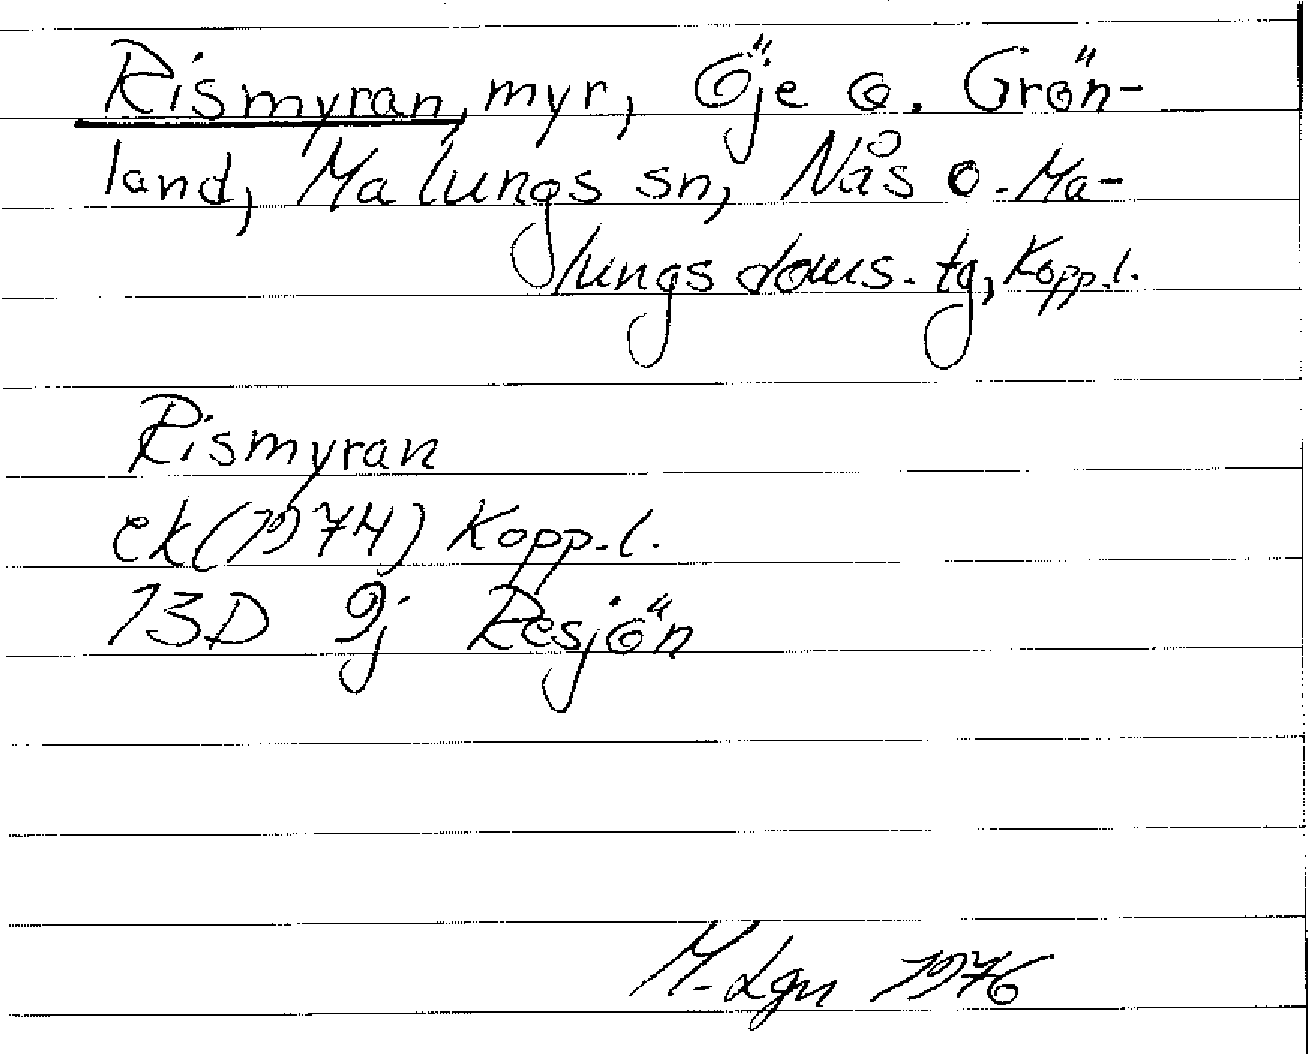 Rismyran, myr, Öje o. Grön-
land, Malungs sn, Nås o. Ma-
lungs doms. tg, Kopp. l.
Rismyran
ek (1974) Kopp. l.
13D 9j Resjön
M. Lgn 1976